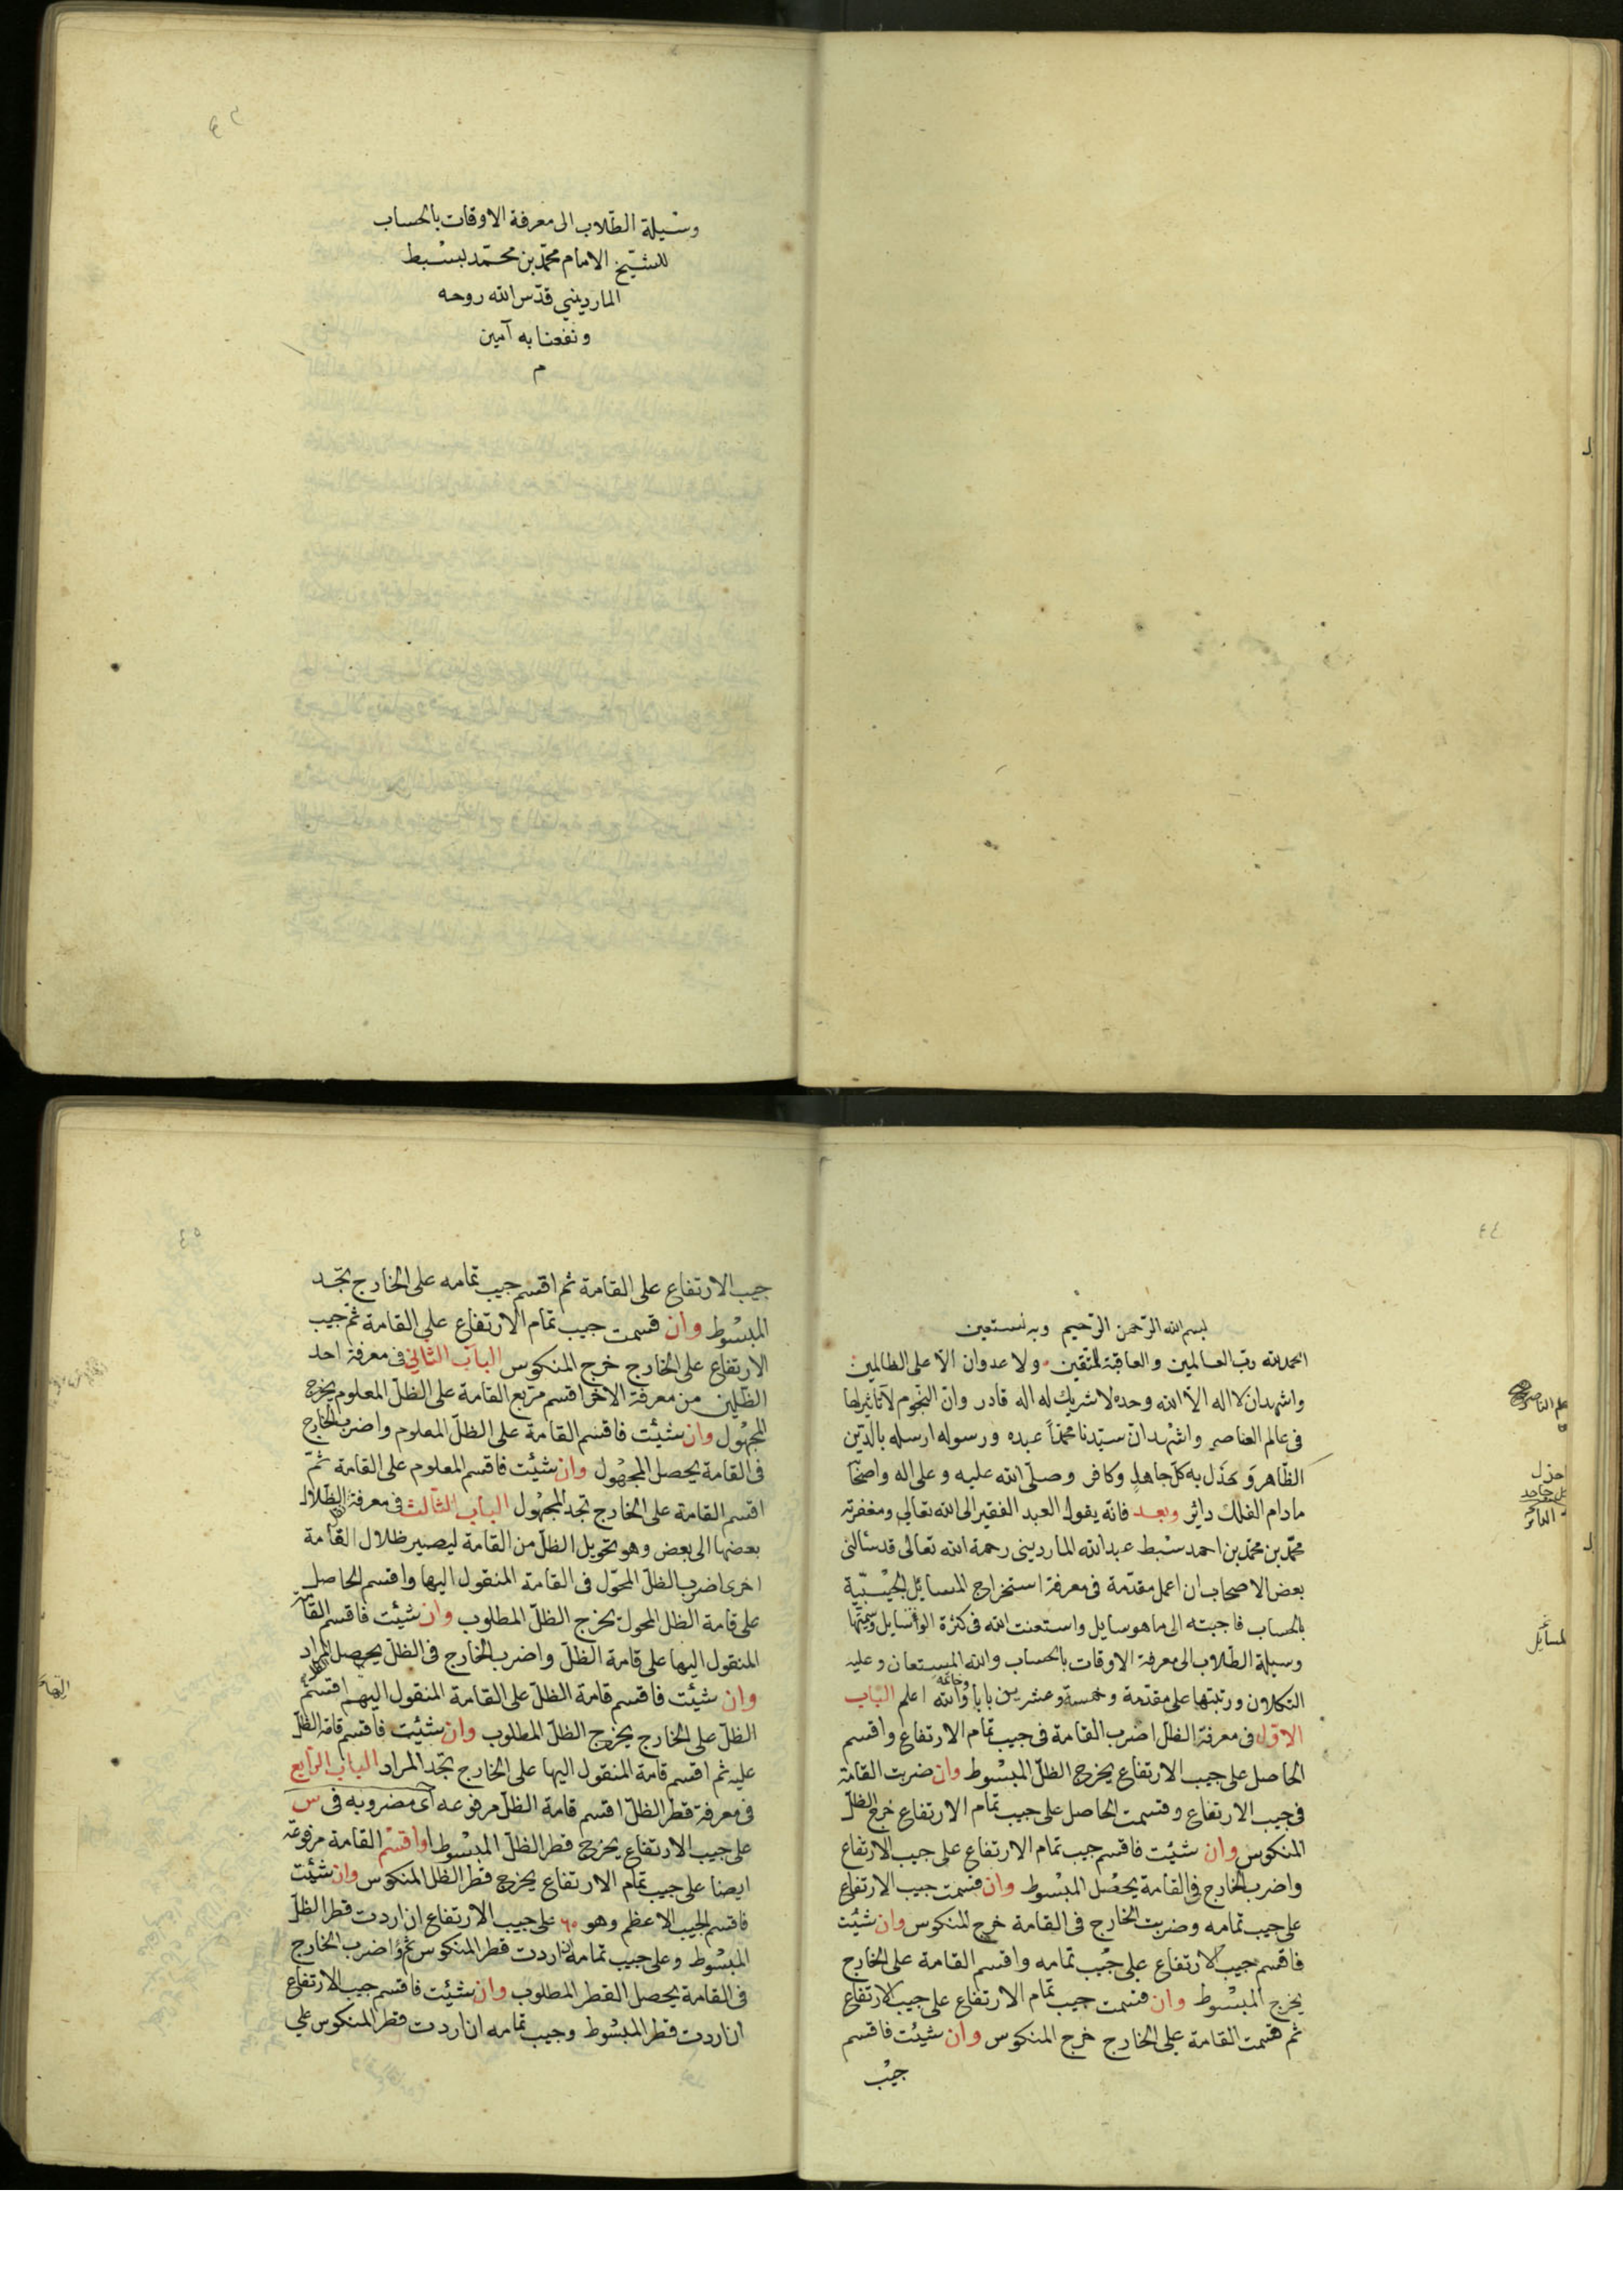 ٤٣
وسيلة الطلاب الى معرفة الاوقات بالحساب
للشيخ الامام محمد بن محمد لسبط
المارديني قدس الله روحه
ونفعنا به آمين
م
٤٤
بسم الله الرحمن الرحيم وبه نستعين
الحمد لله رب العالمين والعاقبة للمتقين ولا عدوان الا على الظالمين
واشهد ان لا اله الا الله وحده لا شريك له اله قادر وان النجوم لا تاثير لها
فى عالم العناصر واشهد ان سيدنا محمداً عبده ورسوله ارسله بالدين
الظاهر وخذل به كل جاهل وكافر وصلى الله عليه وعلى اله واصحابه
مادام الفلك داير وبعد فانه يقول العبد الفقير الى الله تعالى ومغفرته
محمد بن محمد بن احمد سبط عبد الله المارديني رحمة الله تعالى قد سالنى
بعض الاصحاب ان اعمل مقدمة فى معرفة استخراج المسائل الجيبية
بالحساب فاجبته الى ما هو سايل واستعنت الله فى كثرة الوسايل وسميتها
وسيلة الطلاب الى معرفة الاوقات بالحساب والله المستعان وعليه
التكلان ورتبتها على مقدمة وخمسة وعشرين بابا وخاتمة والله اعلم الباب
الاول فى معرفة الظل اضرب القامة فى جيب تمام الارتفاع واقسم
الحاصل على جيب الارتفاع يخرج الظل المبسوط وان ضربت القامة
فى جيب الارتفاع وقسمت الحاصل على جيب تمام الارتفاع خرج الظل
المنكوس وان شئت فاقسم جيب تمام الارتفاع على جيب الارتفاع
واضرب الخارج فى القامة يحصل المبسوط وان قسمت جيب الارتفاع
على جيب تمامه وضربت الخارج فى القامة خرج المنكوس وان شئت
فاقسم جيب الارتفاع على جيب تمامه واقسم القامة على الخارج
يخرج المبسوط وان قسمت جيب تمام الارتفاع على جيب الارتفاع
ثم قسمت القامة على الخارج خرج المنكوس وان شئت فاقسم
جيب
٤٥
جيب الارتفاع على القامة ثم اقسم جيب تمامه على الخارج تجد
المبسوط وان قسمت جيب تمام الارتفاع على القامة ثم جيب
الارتفاع على الخارج خرج المنكوس الباب الثانى فى معرفة احد
الظلين من معرفة الاخر اقسم مربع القامة على الظل المعلوم يخرج
المجهول وان شئت فاقسم القامة على الظل المعلوم واضرب الخارج
فى القامة يحصل المجهول وان شئت فاقسم المعلوم على القامة ثم
اقسم القامة على الخارج تجد المجهول الباب الثالث فى معرفة الظلال
بعضها الى بعض وهو تحويل الظل من القامة ليصير ظلال القامة
اخرى اضرب الظل المحول فى القامة المنقول اليها واقسم الحاصل
على قامة الظل المحول يخرج الظل المطلوب وان شئت فاقسم القامة
المنقول اليها على قامة الظل واضرب الخارج فى الظل يحصل المراد
وان شئت فاقسم قامة الظل على القامة المنقول اليها ثم اقسم
الظل على الخارج يخرج الظل المطلوب وان شئت فاقسم قامة الظل
عليه ثم اقسم قامة المنقول اليها على الخارج تجد المراد الباب الرابع
فى معرفة قطر الظل اقسم قامة الظل مرفوعه اى مضروبه فى س
على جيب الارتفاع يخرج قطر الظل المبسوط او اقسم القامة مرفوعة
ايضا على جيب تمام الارتفاع يخرج قطر الظل المنكوس وان شئت
فاقسم الجيب الاعظم وهو ٦٠ على جيب الارتفاع ان اردت قطر الظل
المبسوط وعلى جيب تمامه ان اردت قطر المنكوس ثم اضرب الخارج
فى القامة يحصل القطر المطلوب وان شئت فاقسم جيب الارتفاع
ان اردت قطر المبسوط وجيب تمامه ان اردت قطر المنكوس على